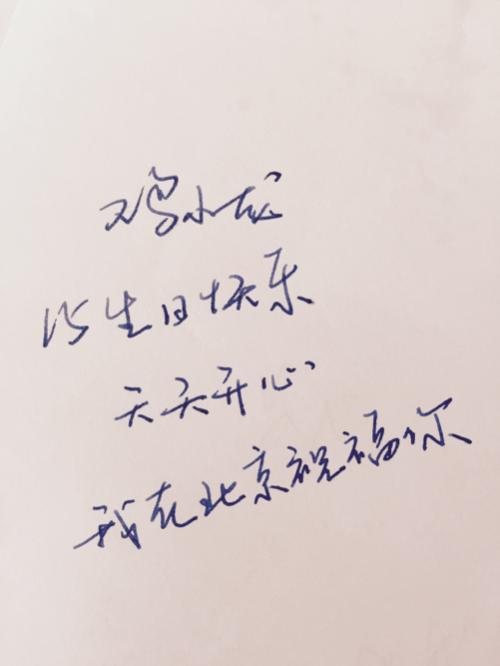 鸡小龙
15生日快乐
天天开心
我在北京祝福你